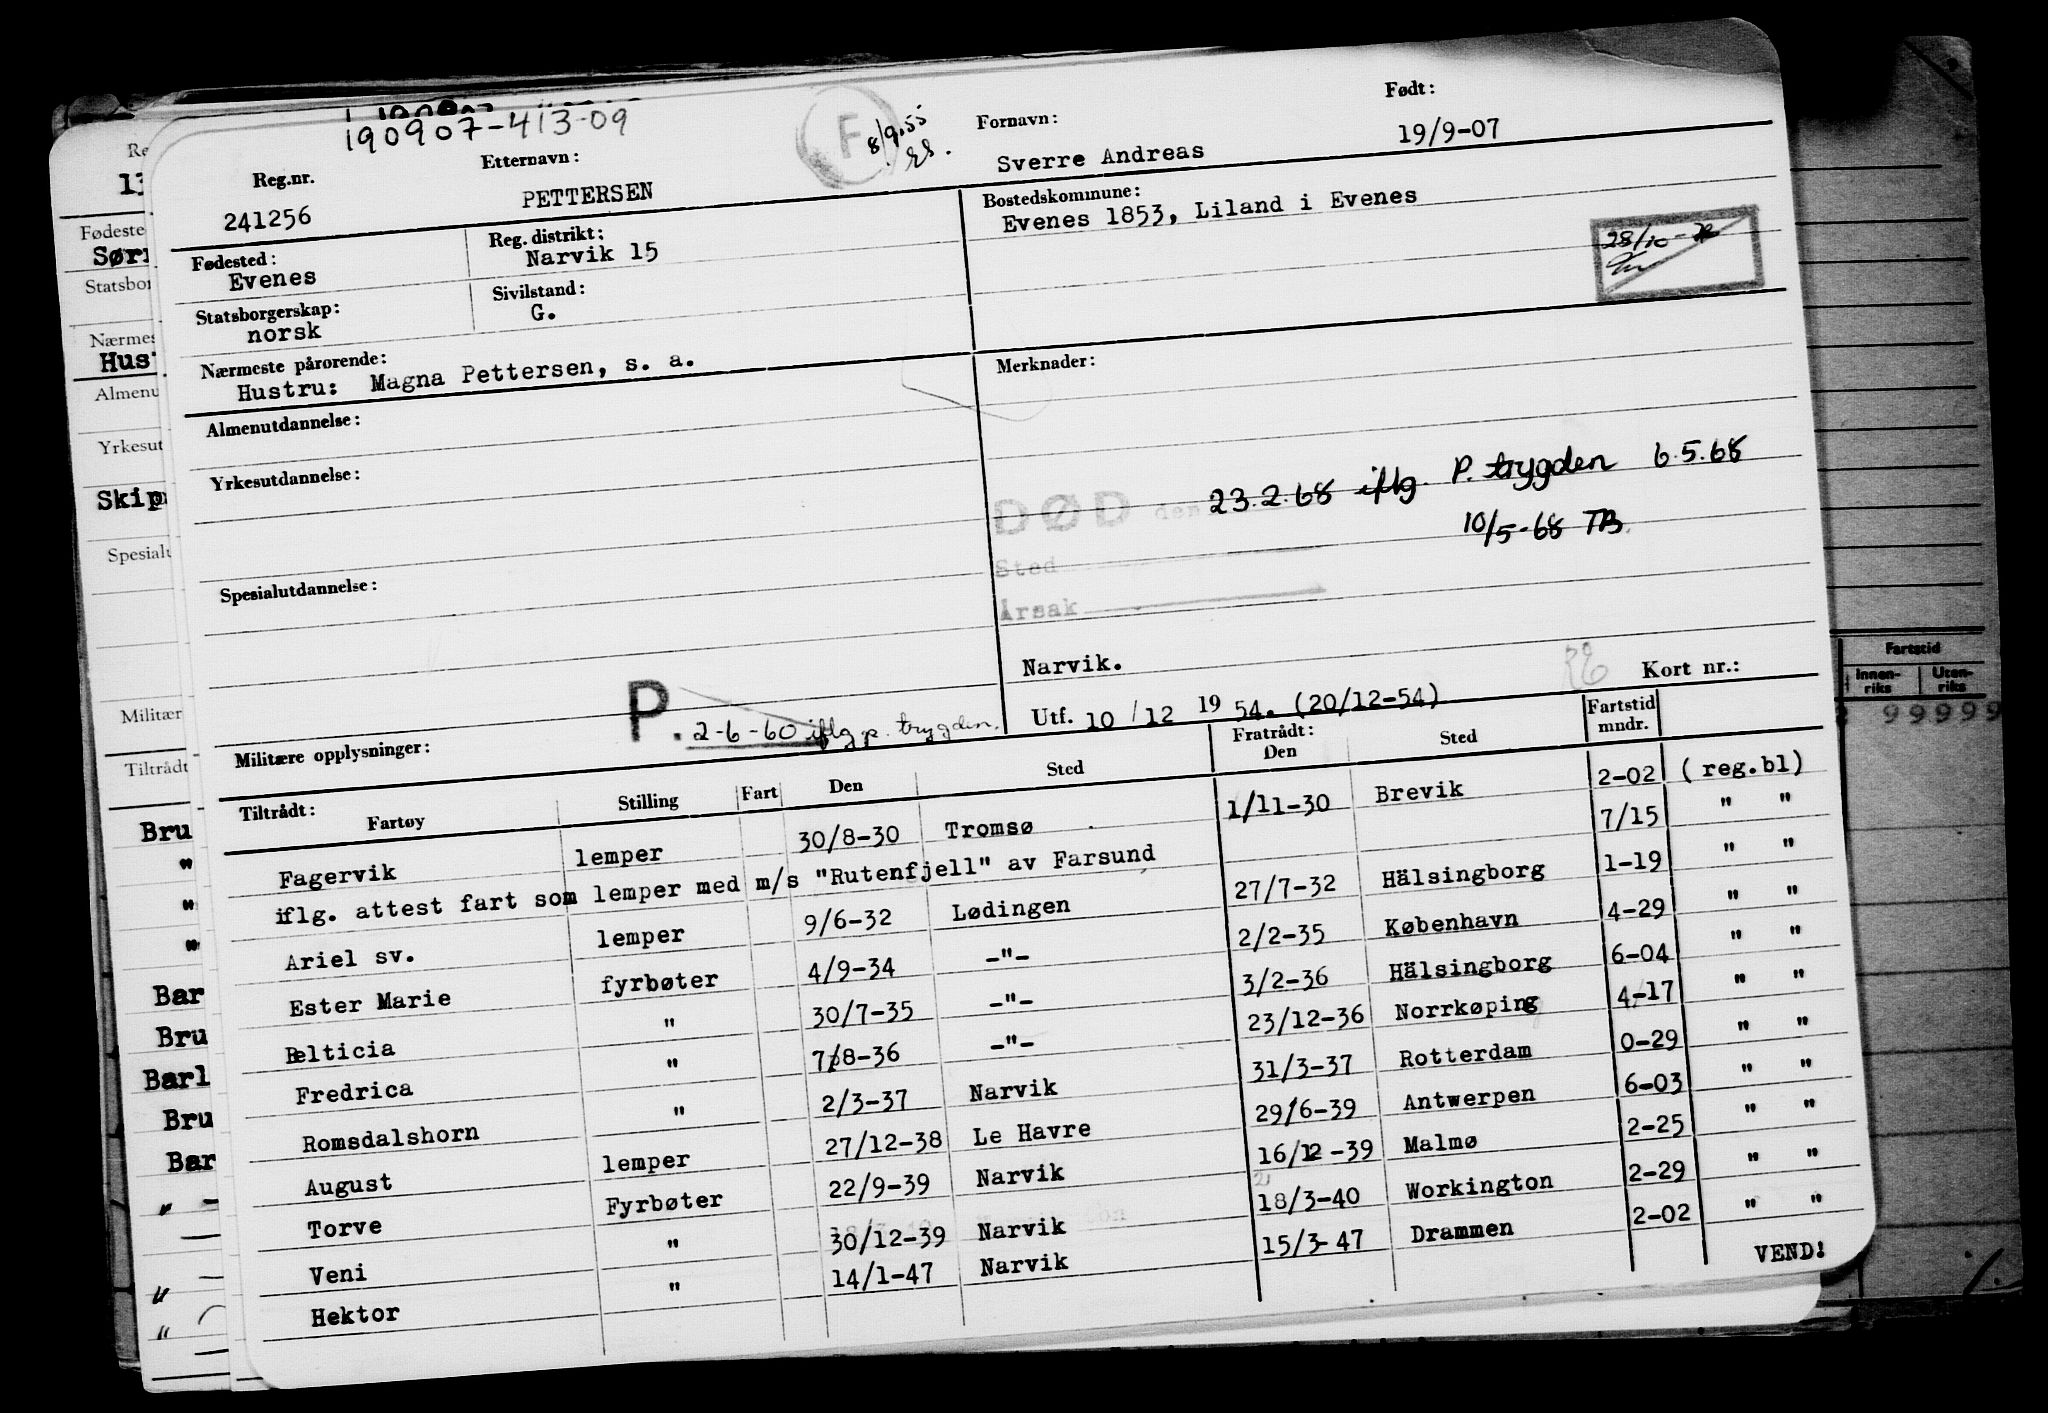 190907-413-09
F 8/9.55
Reg.nr. Etternavn: Fornavn: Født:
241256 PETTERSEN Sverre Andreas 19/9-07
Fødested: Reg. distrikt: Bostedskommune:
Evenes Narvik 15 Evenes 1853, Liland i Evenes
Statsborgerskap: Sivilstand:
norsk G.
28/10-
Nærmeste pårørende: Merknader:
Hustru: Magna Pettersen, s. a.
Almenutdannelse:
Yrkesutdannelse:
DØD den 23.2.68 iflg. P. trygden 6.5.68
10/5-68 TB.
Sted
Årsak
Spesialutdannelse:
Narvik.
P. 2-6-60 iflg p. trygden.
Utf. 10/12 1954. (20/12-54) Kort nr.:
Militære opplysninger:
Tiltrådt: Fratrådt: Fartstid
Fartøy Stilling Fart Den Sted Den Sted mndr.
Fagervik lemper 30/8-30 Tromsø 1/11-30 Brevik 2-02 (reg.bl)
iflg. attest fart som lemper med m/s "Rutenfjell" av Farsund 7/15 " "
Ariel sv. lemper 9/6-32 Lødingen 27/7-32 Hälsingborg 1-19 " "
Ester Marie fyrbøter 4/9-34 -"- 2/2-35 København 4-29 " "
Belticia " 30/7-35 -"- 3/2-36 Hälsingborg 6-04 " "
Fredrica " 7/8-36 -"- 23/12-36 Norrkøping 4-17 " "
Romsdalshorn " 2/3-37 Narvik 31/3-37 Rotterdam 0-29 " "
August lemper 27/12-38 Le Havre 29/6-39 Antwerpen 6-03 " "
Torve Fyrbøter 22/9-39 Narvik 16/12-39 Malmø 2-25 " "
Veni " 30/12-39 Narvik 18/3-40 Workington 2-29 " "
Hektor " 14/1-47 Narvik 15/3-47 Drammen 2-02 " "
VEND!
Re
Fødeste
Sørr
Statsbor
Nærmes
Hust
Almenu
Yrkesut
Skip
Spesialu
Militær
Tiltrådt
Bru
"
"
"
Bar
Bru
Barl
Bru
Bar
"
"
"
Fartstid
Innen-riks Uten-riks
99999